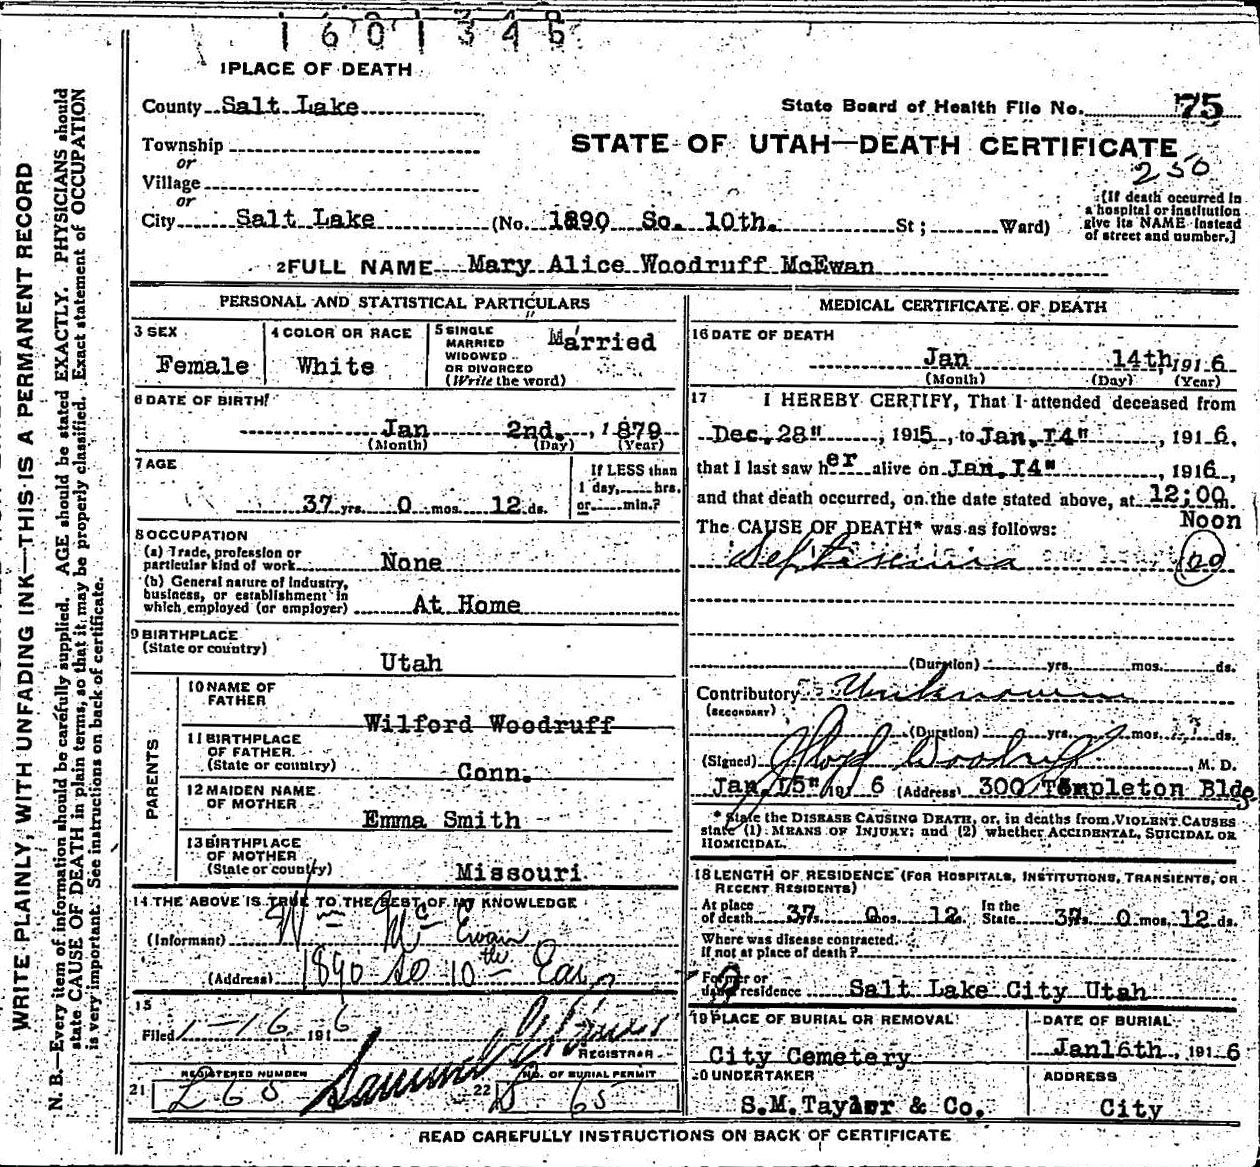 160134
1 PLACE OF DEATH
County Salt Lake
State Board of Health File No. 75
Township
or
STATE OF UTAH—DEATH CERTIFICATE
250
Village
or
City Salt Lake (No. 1890 So. 10th. St; Ward)
[If death occurred in
a hospital or institution
give its NAME instead
of street and number.]
2 FULL NAME Mary Alice Woodruff McEwan
PERSONAL AND STATISTICAL PARTICULARS
3 SEX
Female
4 COLOR OR RACE
White
5 SINGLE
MARRIED
WIDOWED
OR DIVORCED
(Write the word)
Married
6 DATE OF BIRTH
Jan 2nd. , 1879
(Month) (Day) (Year)
7 AGE
37 yrs. 0 mos. 12 ds.
If LESS than
1 day, hrs.
or min.?
8 OCCUPATION
(a) Trade, profession or
particular kind of work None
(b) General nature of industry,
business, or establishment in
which employed (or employer) At Home
9 BIRTHPLACE
(State or country)
Utah
PARENTS
10 NAME OF
FATHER
Wilford Woodruff
11 BIRTHPLACE
OF FATHER
(State or country)
Conn.
12 MAIDEN NAME
OF MOTHER
Emma Smith
13 BIRTHPLACE
OF MOTHER
(State or country)
Missouri
14 THE ABOVE IS TRUE TO THE BEST OF MY KNOWLEDGE
(Informant) Wm McEwan
(Address) 1890 So 10th East
15
Filed 1-16 1916
REGISTRAR
21 REGISTERED NUMBER
22 NO. OF BURIAL PERMIT
65
MEDICAL CERTIFICATE OF DEATH
16 DATE OF DEATH
Jan 14th, 1916
(Month) (Day) (Year)
17 I HEREBY CERTIFY, That I attended deceased from
Dec. 28" , 1915, to Jan. 14" , 1916.
that I last saw her alive on Jan. 14" , 1916,
and that death occurred, on the date stated above, at 12:00 m.
Noon
The CAUSE OF DEATH* was as follows:
Septicemia
(Duration) yrs. mos. ds.
Contributory Unknown
(SECONDARY)
(Duration) yrs. mos. ds.
(Signed) Lloyd Woodruff M. D.
Jan. 15" 191 6 (Address) 300 Templeton Bldg
* State the DISEASE CAUSING DEATH, or, in deaths from VIOLENT CAUSES
state (1) MEANS OF INJURY; and (2) whether ACCIDENTAL, SUICIDAL OR
HOMICIDAL.
18 LENGTH OF RESIDENCE (FOR HOSPITALS, INSTITUTIONS, TRANSIENTS, OR
RECENT RESIDENTS)
At place
of death 37 yrs. 0 mos. 12 In the
State 37 0 mos. 12 ds.
Where was disease contracted.
If not at place of death?
Former or
usual residence Salt Lake City Utah
19 PLACE OF BURIAL OR REMOVAL
City Cemetery
DATE OF BURIAL
Jan 16th , 1916
20 UNDERTAKER
S.M. Taylor & Co.
ADDRESS
City
READ CAREFULLY INSTRUCTIONS ON BACK OF CERTIFICATE
WRITE PLAINLY, WITH UNFADING INK—THIS IS A PERMANENT RECORD
N. B.—Every item of information should be carefully supplied. AGE should be stated EXACTLY. PHYSICIANS should
state CAUSE OF DEATH in plain terms, so that it may be properly classified. Exact statement of OCCUPATION
is very important. See instructions on back of certificate.